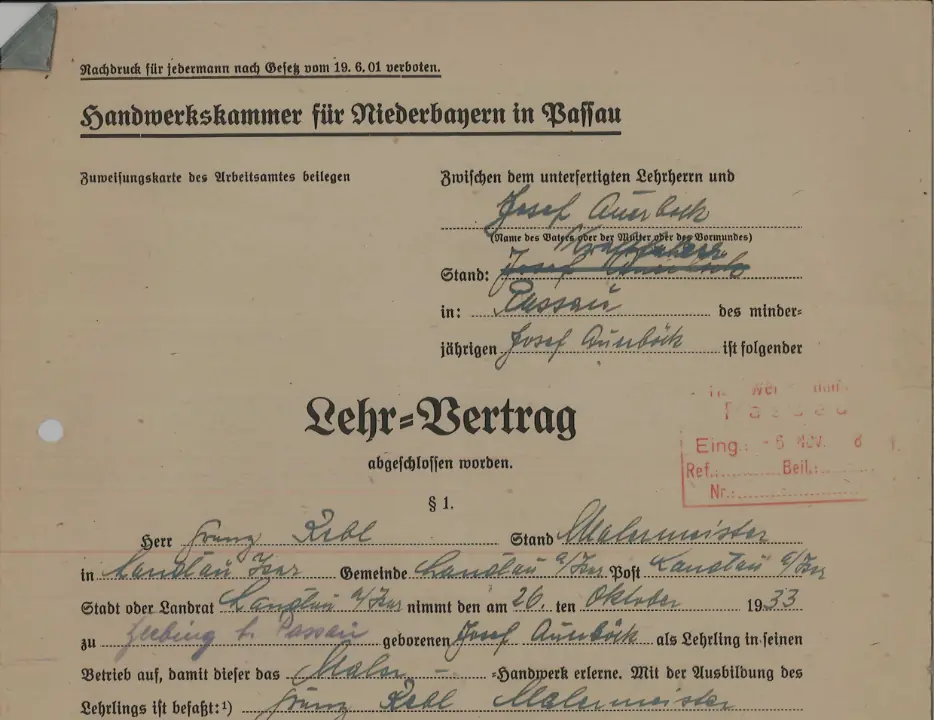 Nachdruck für jedermann nach Gesetz vom 19. 6. 01 verboten.
Handwerkskammer für Niederbayern in Passau
Zuweisungskarte des Arbeitsamtes beilegen
Zwischen dem unterfertigten Lehrherrn und
Josef Auerböck
(Name des Vaters oder der Mutter oder des Vormundes)
Stand: Josef Auerböck
in: Passau des minder-
jährigen Josef Auerböck ist folgender
Lehr-Vertrag
abgeschlossen worden.
Eing.: -6 NOV.
Ref.: Beil.:
Nr.:
§ 1.
Herr Franz Stand Malermeister
in Landau Isar Gemeinde Landau a/Isar Post Landau a/Isar
Stadt oder Landrat Landau a/Isar nimmt den am 20. ten Oktober 1933
zu b. Passau geborenen Josef Auerböck als Lehrling in seinen
Betrieb auf, damit dieser das Maler- -Handwerk erlerne. Mit der Ausbildung des
Lehrlings ist befaßt:¹) Franz Malermeister